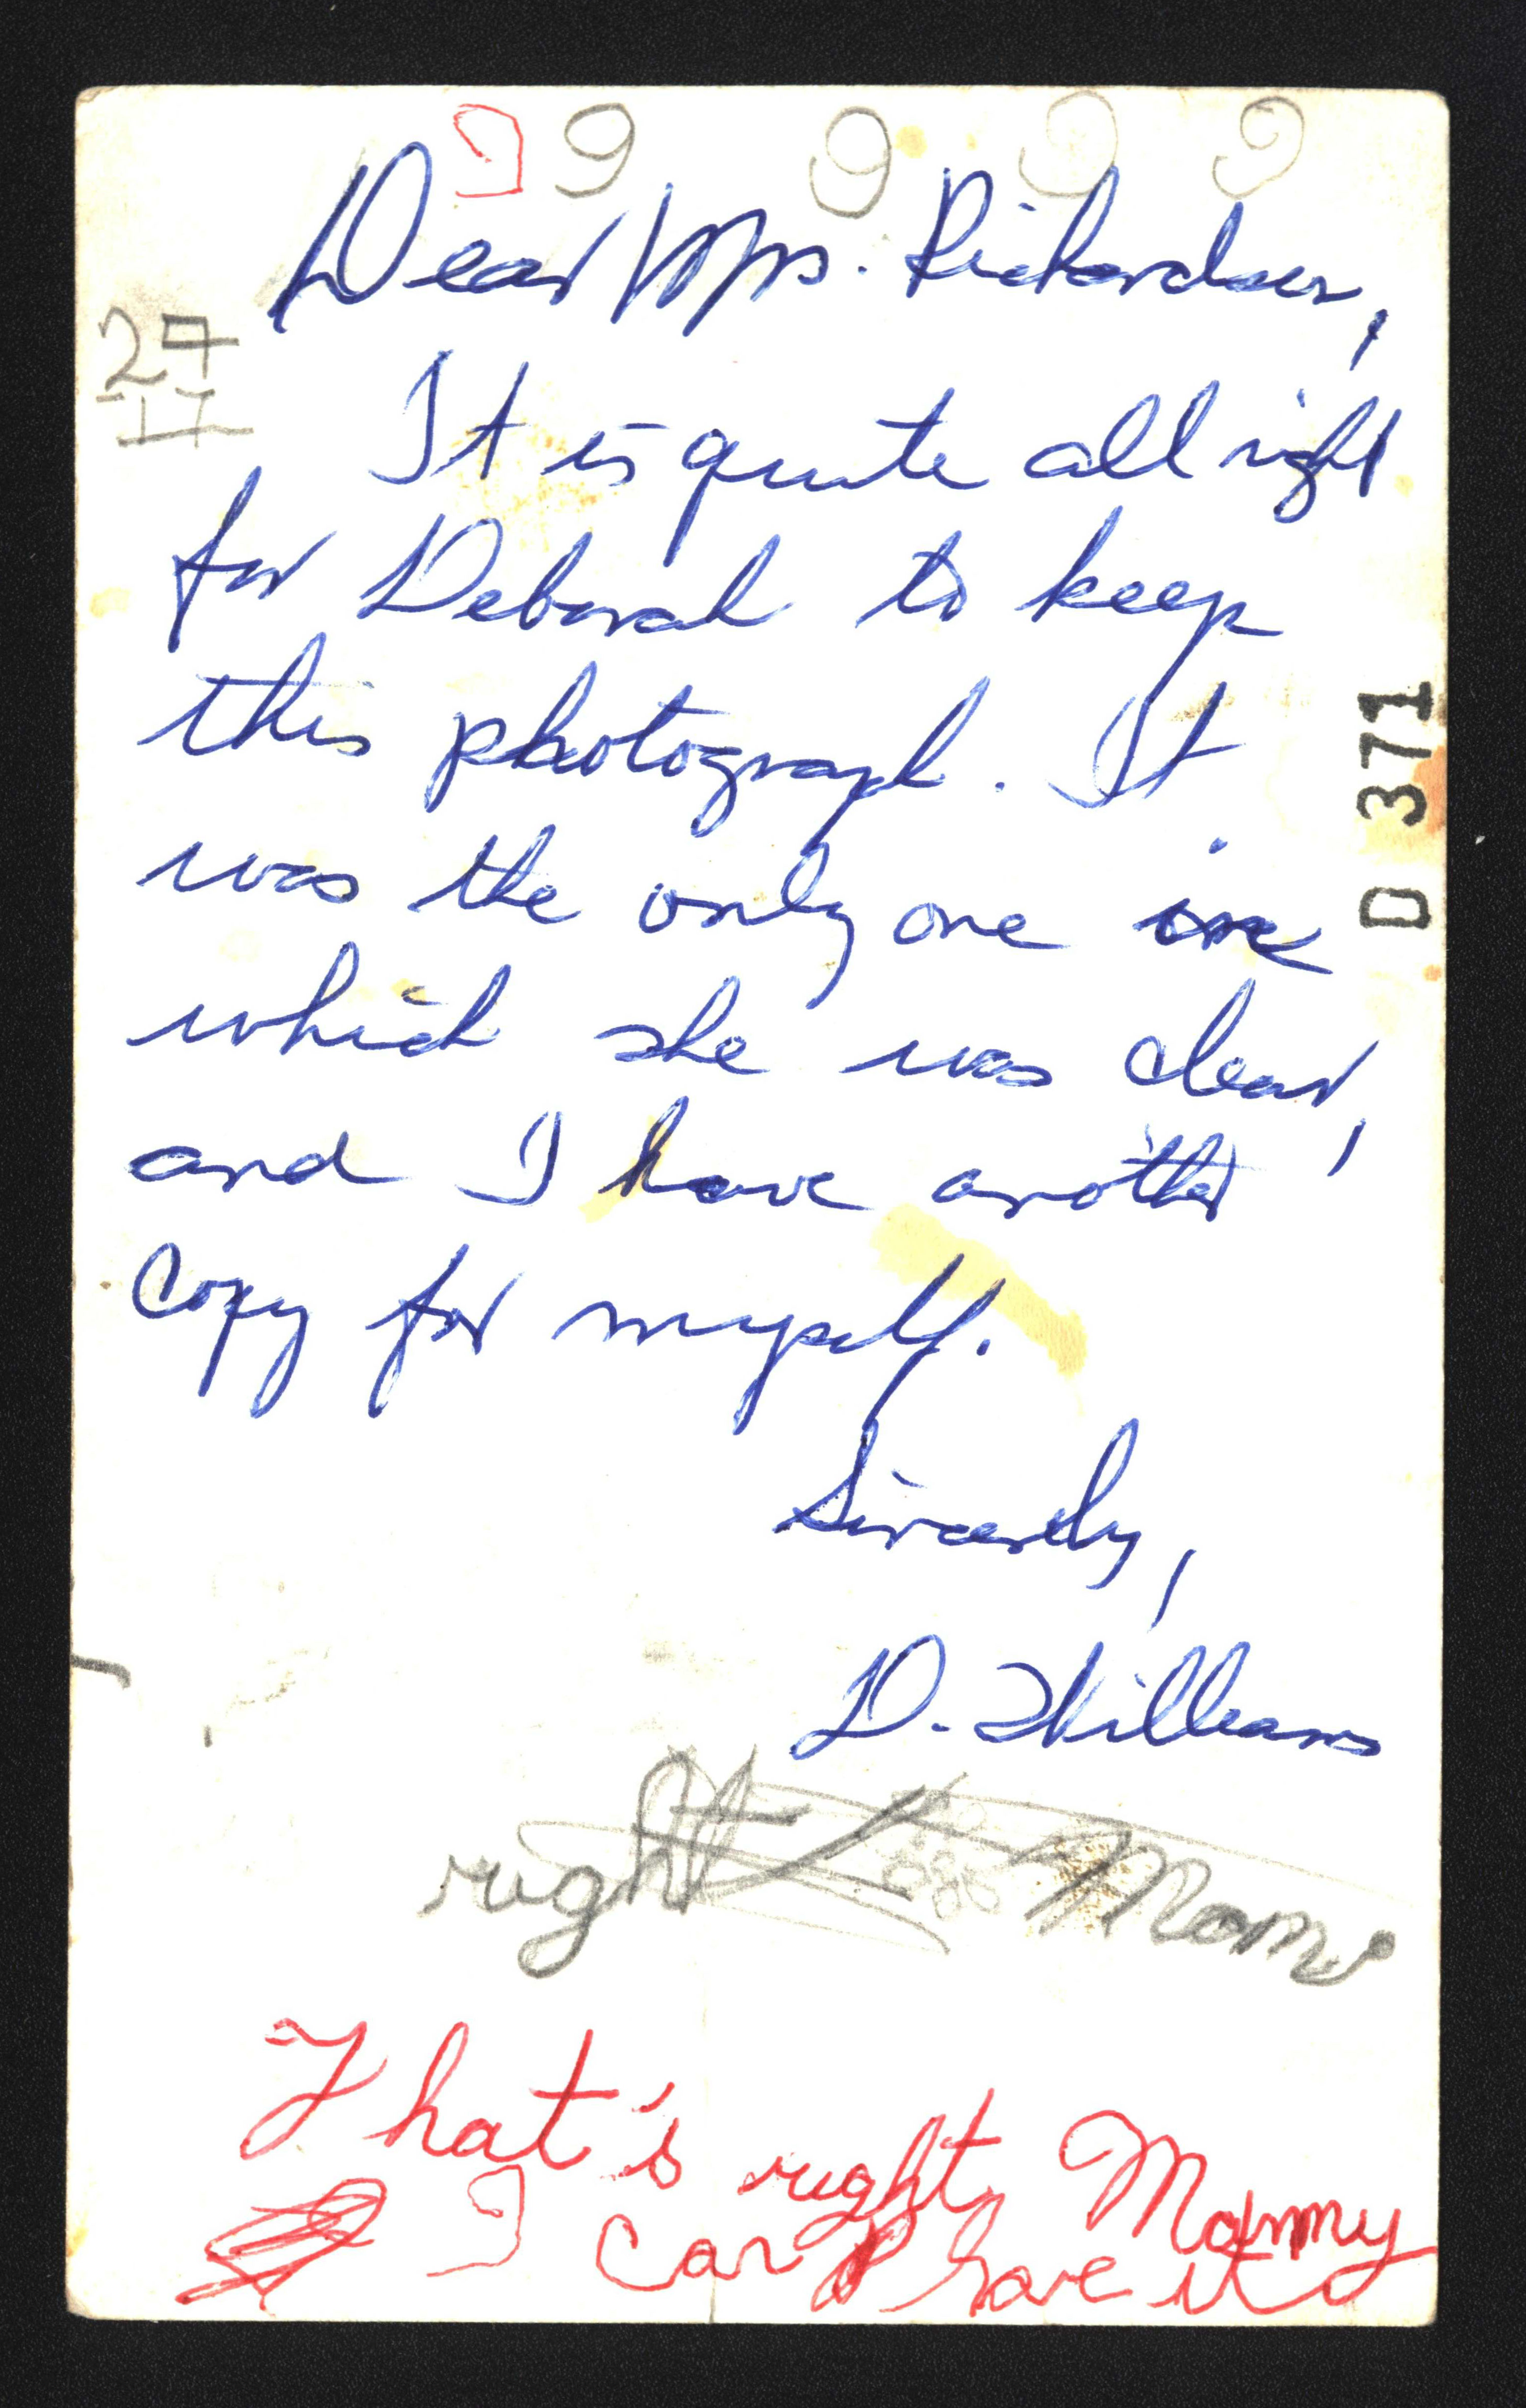 9 9 9 9 9
Dear Mrs. Richardson,
27
17
It is quite all right
for Deborah to keep
this photograph. It
was the only one in
which she was clear,
and I have another
copy for myself.
Sincerely,
D. Williams
D 371
right Mom
That's right Mommy
I can have it